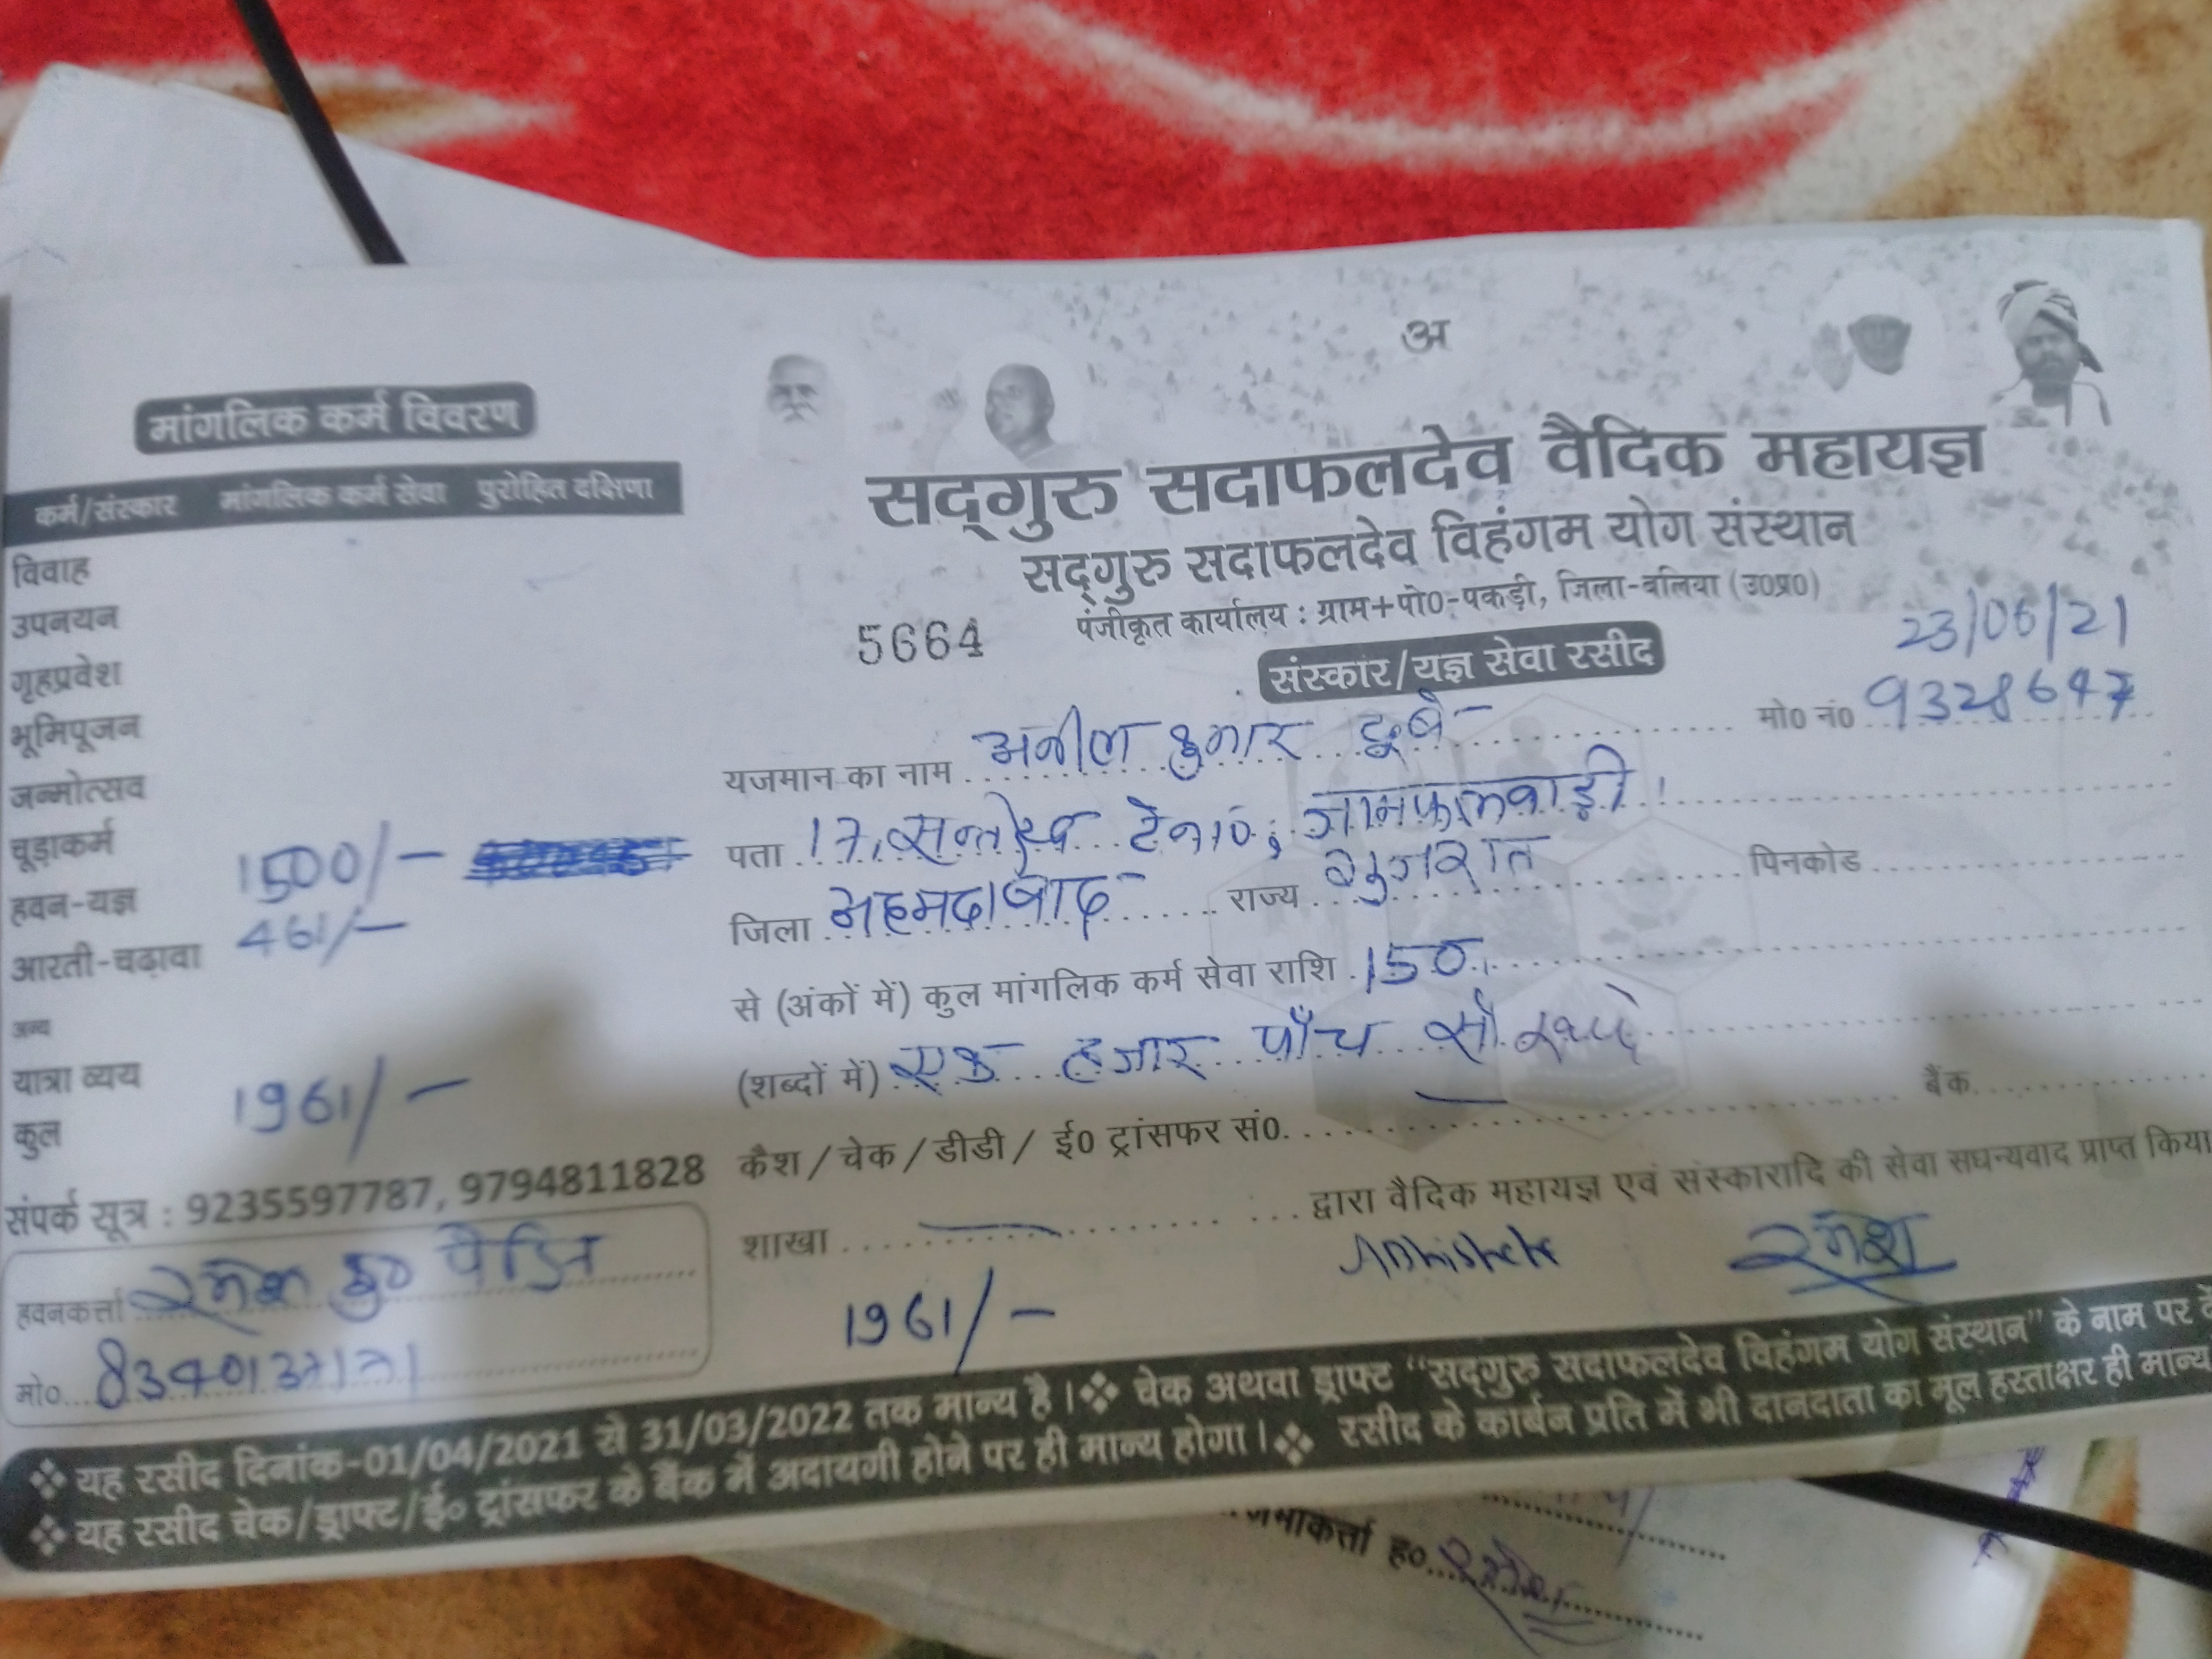 अ
मांगलिक कर्म विवरण
कर्म/संस्कार मांगलिक कर्म सेवा पुरोहित दक्षिणा
विवाह
उपनयन
गृहप्रवेश
भूमिपूजन
जन्मोत्सव
चूड़ाकर्म
हवन-यज्ञ 1500/-
आरती-चढ़ावा 461/-
अन्य
यात्रा व्यय
कुल 1961/-
संपर्क सूत्र : 9235597787, 9794811828
हवनकर्त्ता रमेश कु० पंडित
मो०
सद्गुरु सदाफलदेव वैदिक महायज्ञ
सद्गुरु सदाफलदेव विहंगम योग संस्थान
पंजीकृत कार्यालय : ग्राम+पो0-पकड़ी, जिला-बलिया (उ0प्र0)
5664
23/06/21
संस्कार/यज्ञ सेवा रसीद
यजमान का नाम अनील कुमार दूबे मो0 नं0 9328647
पता 17, जामफलवाड़ी
जिला अहमदाबाद राज्य गुजरात पिनकोड
से (अंकों में) कुल मांगलिक कर्म सेवा राशि 150
(शब्दों में) एक हजार पाँच सौ रूपये
कैश / चेक / डीडी / ई0 ट्रांसफर सं0. बैंक
शाखा द्वारा वैदिक महायज्ञ एवं संस्कारादि की सेवा सधन्यवाद प्राप्त किया
1961/- Abhishek रमेश
❖ यह रसीद दिनांक-01/04/2021 से 31/03/2022 तक मान्य है। ❖ चेक अथवा ड्राफ्ट “सद्गुरु सदाफलदेव विहंगम योग संस्थान” के नाम पर
❖ यह रसीद चेक/ड्राफ्ट/ई० ट्रांसफर के बैंक में अदायगी होने पर ही मान्य होगा। ❖ रसीद के कार्बन प्रति में भी दानदाता का मूल हस्ताक्षर ही मान्य
जमाकर्त्ता ह० रमेश